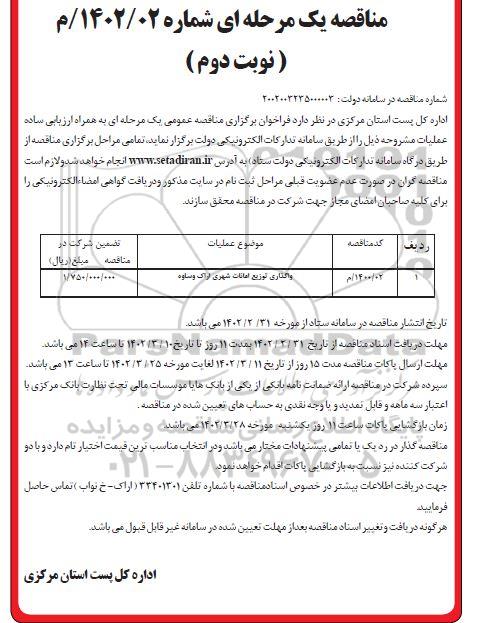 مناقصه یک مرحله ای شماره ۱۴۰۲/۰۲/م
(نوبت دوم)
شماره مناقصه در سامانه دولت: ۲۰۰۲۰۰۳۲۳۵۰۰۰۰۰۳
اداره کل پست استان مرکزی در نظر دارد فراخوان برگزاری مناقصه عمومی یک مرحله ای به همراه ارزیابی ساده
عملیات مشروحه ذیل را از طریق سامانه تدارکات الکترونیکی دولت برگزار نماید، تمامی مراحل برگزاری مناقصه از
طریق درگاه سامانه تدارکات الکترونیکی دولت ستاد) به آدرس www.setadiran.ir انجام خواهد شد ولازم است
مناقصه گران در صورت عدم عضویت قبلی مراحل ثبت نام در سایت مذکور ودریافت گواهی امضاء الکترونیکی را
برای کلیه صاحبان امضای مجاز جهت شرکت در مناقصه محقق سازند.
ردیف کدمناقصه موضوع عملیات تضمین شرکت در مناقصه مبلغ(ریال)
۱ ۱۴۰۰/۰۲/م واگذاری توزیع امانات شهری اراک وساوه ۱/۷۵۰/۰۰۰/۰۰۰
تاریخ انتشار مناقصه در سامانه ستاد از مورخه ۳۱/ ۲/ ۱۴۰۲ می باشد.
مهلت دریافت اسناد مناقصه از تاریخ ۳۱ / ۲ / ۱۴۰۲ بمدت ۱۱ روز تا تاریخ ۱۰ / ۳ / ۱۴۰۲ تا ساعت ۱۴ می باشد.
مهلت ارسال پاکات مناقصه مدت ۱۵ روز از تاریخ ۱۱ / ۳ / ۱۴۰۲ لغایت مورخه ۲۵ / ۳ / ۱۴۰۲ تا ساعت ۱۳ می باشد.
سپرده شرکت در مناقصه ارائه ضمانت نامه بانکی از یکی از بانک ها یا موسسات مالی تحت نظارت بانک مرکزی با
اعتبار سه ماهه و قابل تمدید و یا وجه نقدی به حساب های تعیین شده در مناقصه .
زمان بازگشایی پاکات ساعت ۱۱ روز یکشنبه مورخه ۱۴۰۲/۳/۲۸ می باشد.
مناقصه گذار در رد یک یا تمامی پیشنهادات مختار می باشد ودر انتخاب مناسب ترین قیمت اختیار تام دارد و با دو
شرکت کننده نیز نسبت به بازگشایی پاکات اقدام خواهد نمود.
جهت دریافت اطلاعات بیشتر در خصوص اسناد مناقصه با شماره تلفن ۳۳۴۰۱۳۰۱ (اراک - خ نواب) تماس حاصل
فرمایید.
هر گونه دریافت و تغییر اسناد مناقصه بعد از مهلت تعیین شده در سامانه غیر قابل قبول می باشد.
اداره کل پست استان مرکزی
ParsNamadData